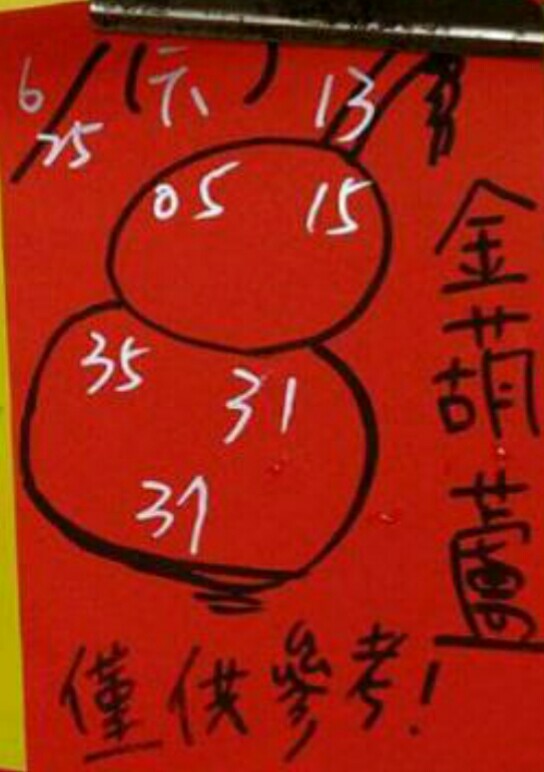 6/25 (六) 13
05 15
35 31
37
金葫蘆
僅供參考!